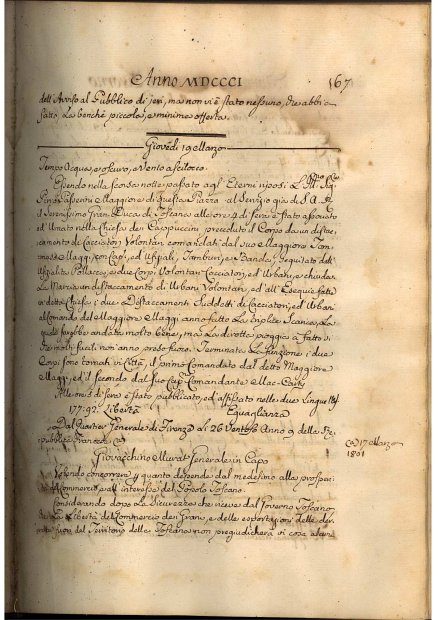 Anno MDCCCI
167
dell'Avviso al Pubblico di jeri, ma non vi è stato nessuno, che abbia
fatto la benchè piccola, e minima offerta.
Giovedì 19 Marzo
Tempo Acqua, e oscuro, e Vento a Scilocco.
Essendo nella scorsa notte passato agl'Eterni riposi L'
Maggiore di questa Piazza al Servizio già di S. A. R.
il Serenissimo Gran Duca di Toscana, alle ore 4 di sera è stato associato
ed Umato nella Chiesa dei Cappuccini preceduto il Corpo da un distac
camento di Cacciatori Volontari comandati dal suo Maggiore Tom
maso Maggi, con Capi, ed Uffiziali, Tamburi, e Banda, Seguitato dall'
Uffizialità Pollacca, e due Corpi Volontari Cacciatori, ed Urbani, e chiudeva
La Marcia un distaccamento di Urbani Volontari, ed all'Esequie fatte
in detta Chiesa i due Distaccamenti Suddetti di Cacciatori, ed Urbani
al Comando del Maggiore Maggi anno fatto La triplice Scarica, La
quale sarebbe andata molto bene, ma La dirotta pioggia à fatto sì
che molti fucili non anno preso fuoco. Terminata La funzione i due
Corpi sono tornati in Città, il primo Comandato dal detto Maggiore
Maggi, ed il secondo dal suo Cap. Comandante Mac-Carty
Alle ore di sera è stato pubblicato, ed affissato nelle due Lingue
177. 92. Libertà Eguaglianza
Dal Quartier Generale di Firenze li 26 Ventoso Anno 9 della Re
pubblica Francese
17 Marzo
1801
Giovacchino Murat Generale in Capo
Volendo concorrere per quanto dipende dal medesimo alla prosperità
del Commercio, e all'interesse del Popolo Toscano.
Considerando dopo La Sicurezza che riceve dal Governo Toscano
che La Libertà del Commercio dei Grani, e della esportazione delle der
rate fuori del Territorio della Toscana non pregiudicherà in cosa alcuna